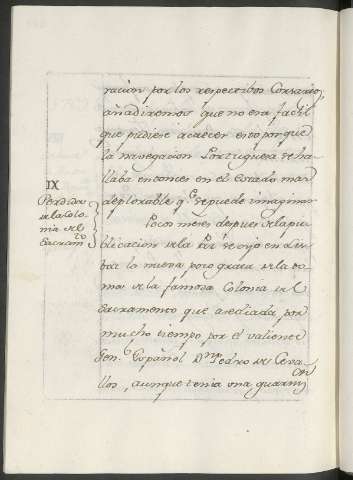 racion por los respectibos Corsarios,
añadiremos que no era facil
que pudiese acaecer esto por que
la navegacion Portuguesa se ha
llaba entonces en el estado mas
deplorable q.e se puede imaginar
IX
Perdida
de la Colo
nia del
Sacram.to
Pocos meses despues de la pu
blicacion de la Paz se oyó en Lis
boa la nueva poco grata de la to
ma de la famosa Colonia del
Sacramento que asediada por
mucho tiempo por el valiente
Gen.l Español D.n Pedro de Ceva
llos, aunque tenia una guarni
cn